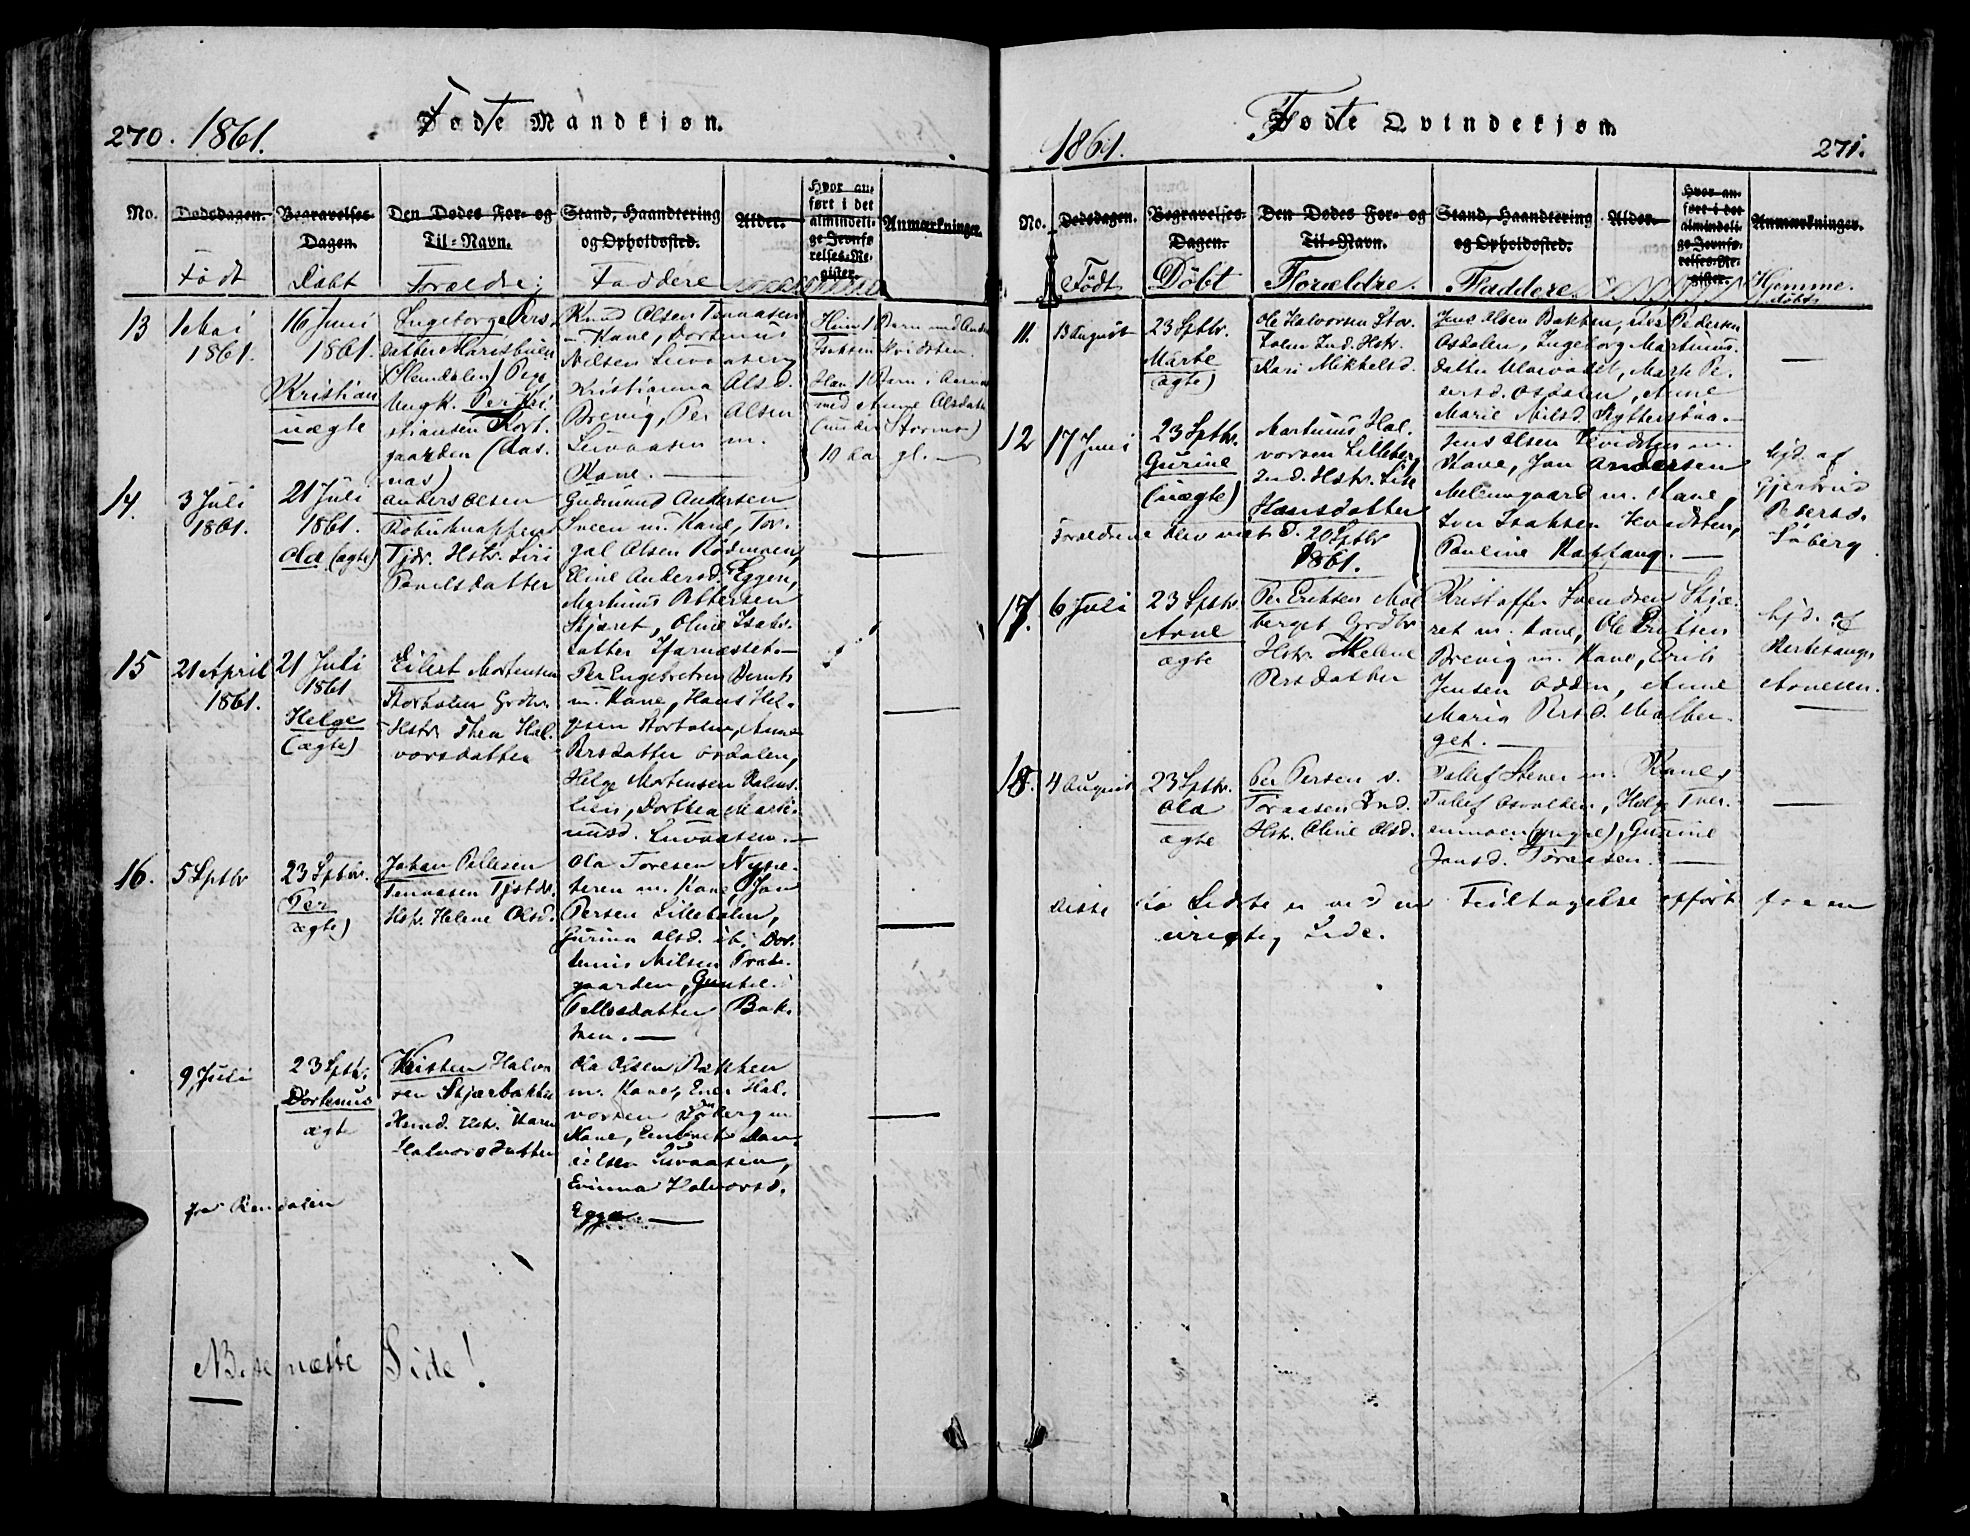 270. 1861. Fødte Mandkjøn.
No.
Dødsdagen.
Født
Begravelses-
Dagen.
Døbt
Den Dødes For- og
Til-Navn.
Forældre
Stand, Haandtering
og Opholdssted.
Faddere
Alder.
Hvor an-
ført i det
almindeli-
ge Jevnfø-
relses-Re-
gister.
Anmærkninger.
13
1 Mai
1861.
16 Juni
1861.
Kristian
uægte
Ingeborg Pers-
datter
(Rendalen) Pige
Ungk. Per Kri-
stiansen
gaarden (Aas-
næs)
Knud Olsen
Kane, Dortenus
Nilsen Livaasen
Kristianna Olsd.
Brevig, Per Olsen
Livaasen m.
Kane.
Hun 1 Barn med
Han 1 Barn i
med Anne Olsdatter
14.
3 Juli
1861.
21 Juli
1861.
Ola (ægte)
Anders Olsen
Tjdr. Hstr. Siri
Povelsdatter
Gudmund Andersen
Sveen m. Kane, Tor-
gal Olsen Rødmoen,
Eline Andersd. Eggen,
Martinus Pettersen
Skjæret, Oline Isaks-
datter
15
21 April
1861.
21 Juli
1861
Helge
(ægte)
Eilert Mortensen
Storholen Grdbr.
Hstr. Thea Hal-
vorsdatter
Per Engebretsen Berset
m. Kane, Hans Hel-
gesen Storholen, Anne
Persdatter Osdalen,
Helge Mortensen
lien, Dorthea Marti-
nusd. Livaasen.
16.
5 Septbr
23 Septbr.
Per
ægte)
Johan Pettersen
Hstr. Helene Olsd.
Ola Toresen Nype-
teren m. Kane, Jon
Persen Lilleholen,
Gurina Olsd. ib., Dor-
tenus Nilsen
gaarden, Guntil
Pettersdatter Bak-
ken.
9 Juli
23 Septbr.
Dortenus
ægte
Kristen Halvor-
sen Skjærbakken
Huusmd. Hstr. Karen
Halvorsdatter
Ola Olsen Bakken
m. Kane, Ener Hal-
vorsen Søberg m.
Kane, Embret Dan-
ielsen Livaasen,
Evinna Halvorsd.
Eggen.
fra Rendalen
NB. se næste Side!
1861. Fødte Qvindekjøn. 271.
No.
Dødsdagen.
Født
Begravelses-
Dagen.
Døbt
Den Dødes For- og
Til-Navn.
Forældre.
Stand, Haandtering
og Opholdssted.
Faddere.
Alder.
Hvor an-
ført i det
almindeli-
ge Jevnfø-
relses-Re-
gister.
Anmærkninger.
Hjemme-
døbt
11.
13 August
23 Septbr.
Marte
(ægte)
Ole Halvorsen Stor-
holen Ind. Hstr.
Kari Mikkelsd.
Jens Olsen Bakken, Nils Pedersen
Osdalen, Ingeborg Martinus-
datter Ulvevadet, Marte Pe-
dersd. Osdalen, Anne
Marie Nilsd. Rytterstraa.
12
17 Juni
23 Septbr.
Gurine
(uægte)
Martinus Hal-
vorsen Lilleberg
Ind. Hstr. Lise
Hansdatter
Jens Olsen Kvidsten m.
Kane, Jon Andersen
Melemgaard m. Kane,
Iver Isaksen Kvidsten,
Pauline Kappang.
Hjd. af
Gjertrud
Pedersd.
Søberg
Forældrene blev viet d. 20 Septbr
1861.
17.
6 Juli
23 Septbr.
Arne
ægte
Per Eriksen Mol-
berget Grdbr
Hstr. Helene
Persdatter
Kristoffer Svendsen Skjæ-
ret m. Kane, Ole Eriksen
Brevig m. Kane, Erik
Jensen Odden, Anne
Maria Persd. Molber-
get.
Hjd. af
Kirkesanger
Arnesen.
18.
4 August
23 Septbr.
Ola
ægte
Per Persen s.
Toraasen Ind.
Hstr. Oline Olsd.
Tollef Stener m. Kane,
Tollef Osvolden, Helge Tver-
enmoen (yngre), Gurine
Jonsd. Toraasen.
Disse to Sidste er ved en Feiltagelse opført paa en
urigtig Side.